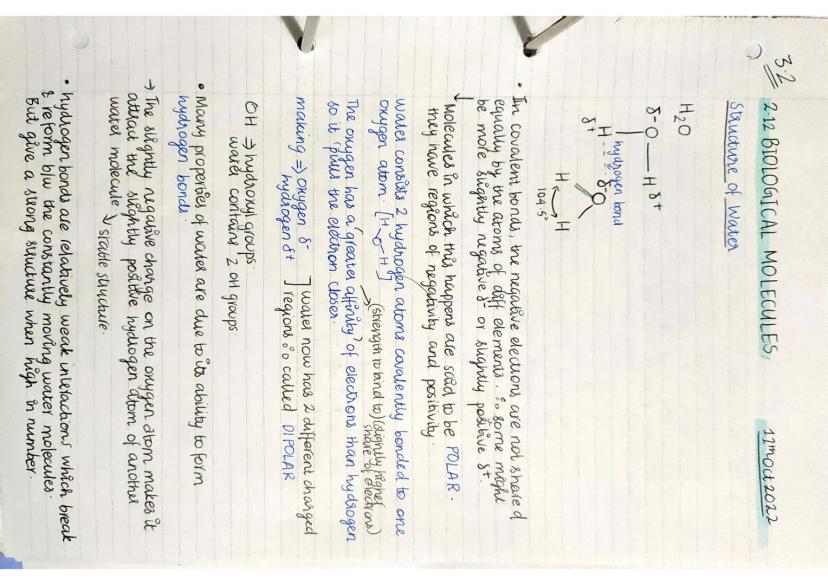 3.2
2.12 BIOLOGICAL MOLECULES,
11th Oct 2022
Structure of Water
H₂O
δ- O — H δ+
hydrogen bond
H δ- O
δ+
H H
104.5°
• In covalent bonds, the negative electrons are not shared
equally by the atoms of diff elements. ∴ some might
be more slightly negative δ- or slightly positive δ+.
Molecules in which this happens are said to be POLAR.
they have regions of negativity and positivity.
water consists 2 hydrogen atoms covalently bonded to one
oxygen atom. [H-O-H]
(strength to bind to) (slightly higher
share of electrons)
The oxygen has a 'greater affinity' of electrons than hydrogen
so it pulls the electron closer.
making ⇒ oxygen δ- ] water now has 2 different charged
hydrogen δ+ ] regions ∴ called DIPOLAR
OH ⇒ hydroxyl groups.
water contains 2 OH groups.
• Many properties of water are due to its ability to form
hydrogen bonds.
→ The slightly negative charge on the oxygen atom makes it
attract the slightly positive hydrogen atom of another
water molecule ↘ stable structure.
• hydrogen bonds are relatively weak interactions which break
& reform b/w the constantly moving water molecules.
But give a strong structure when high in number.